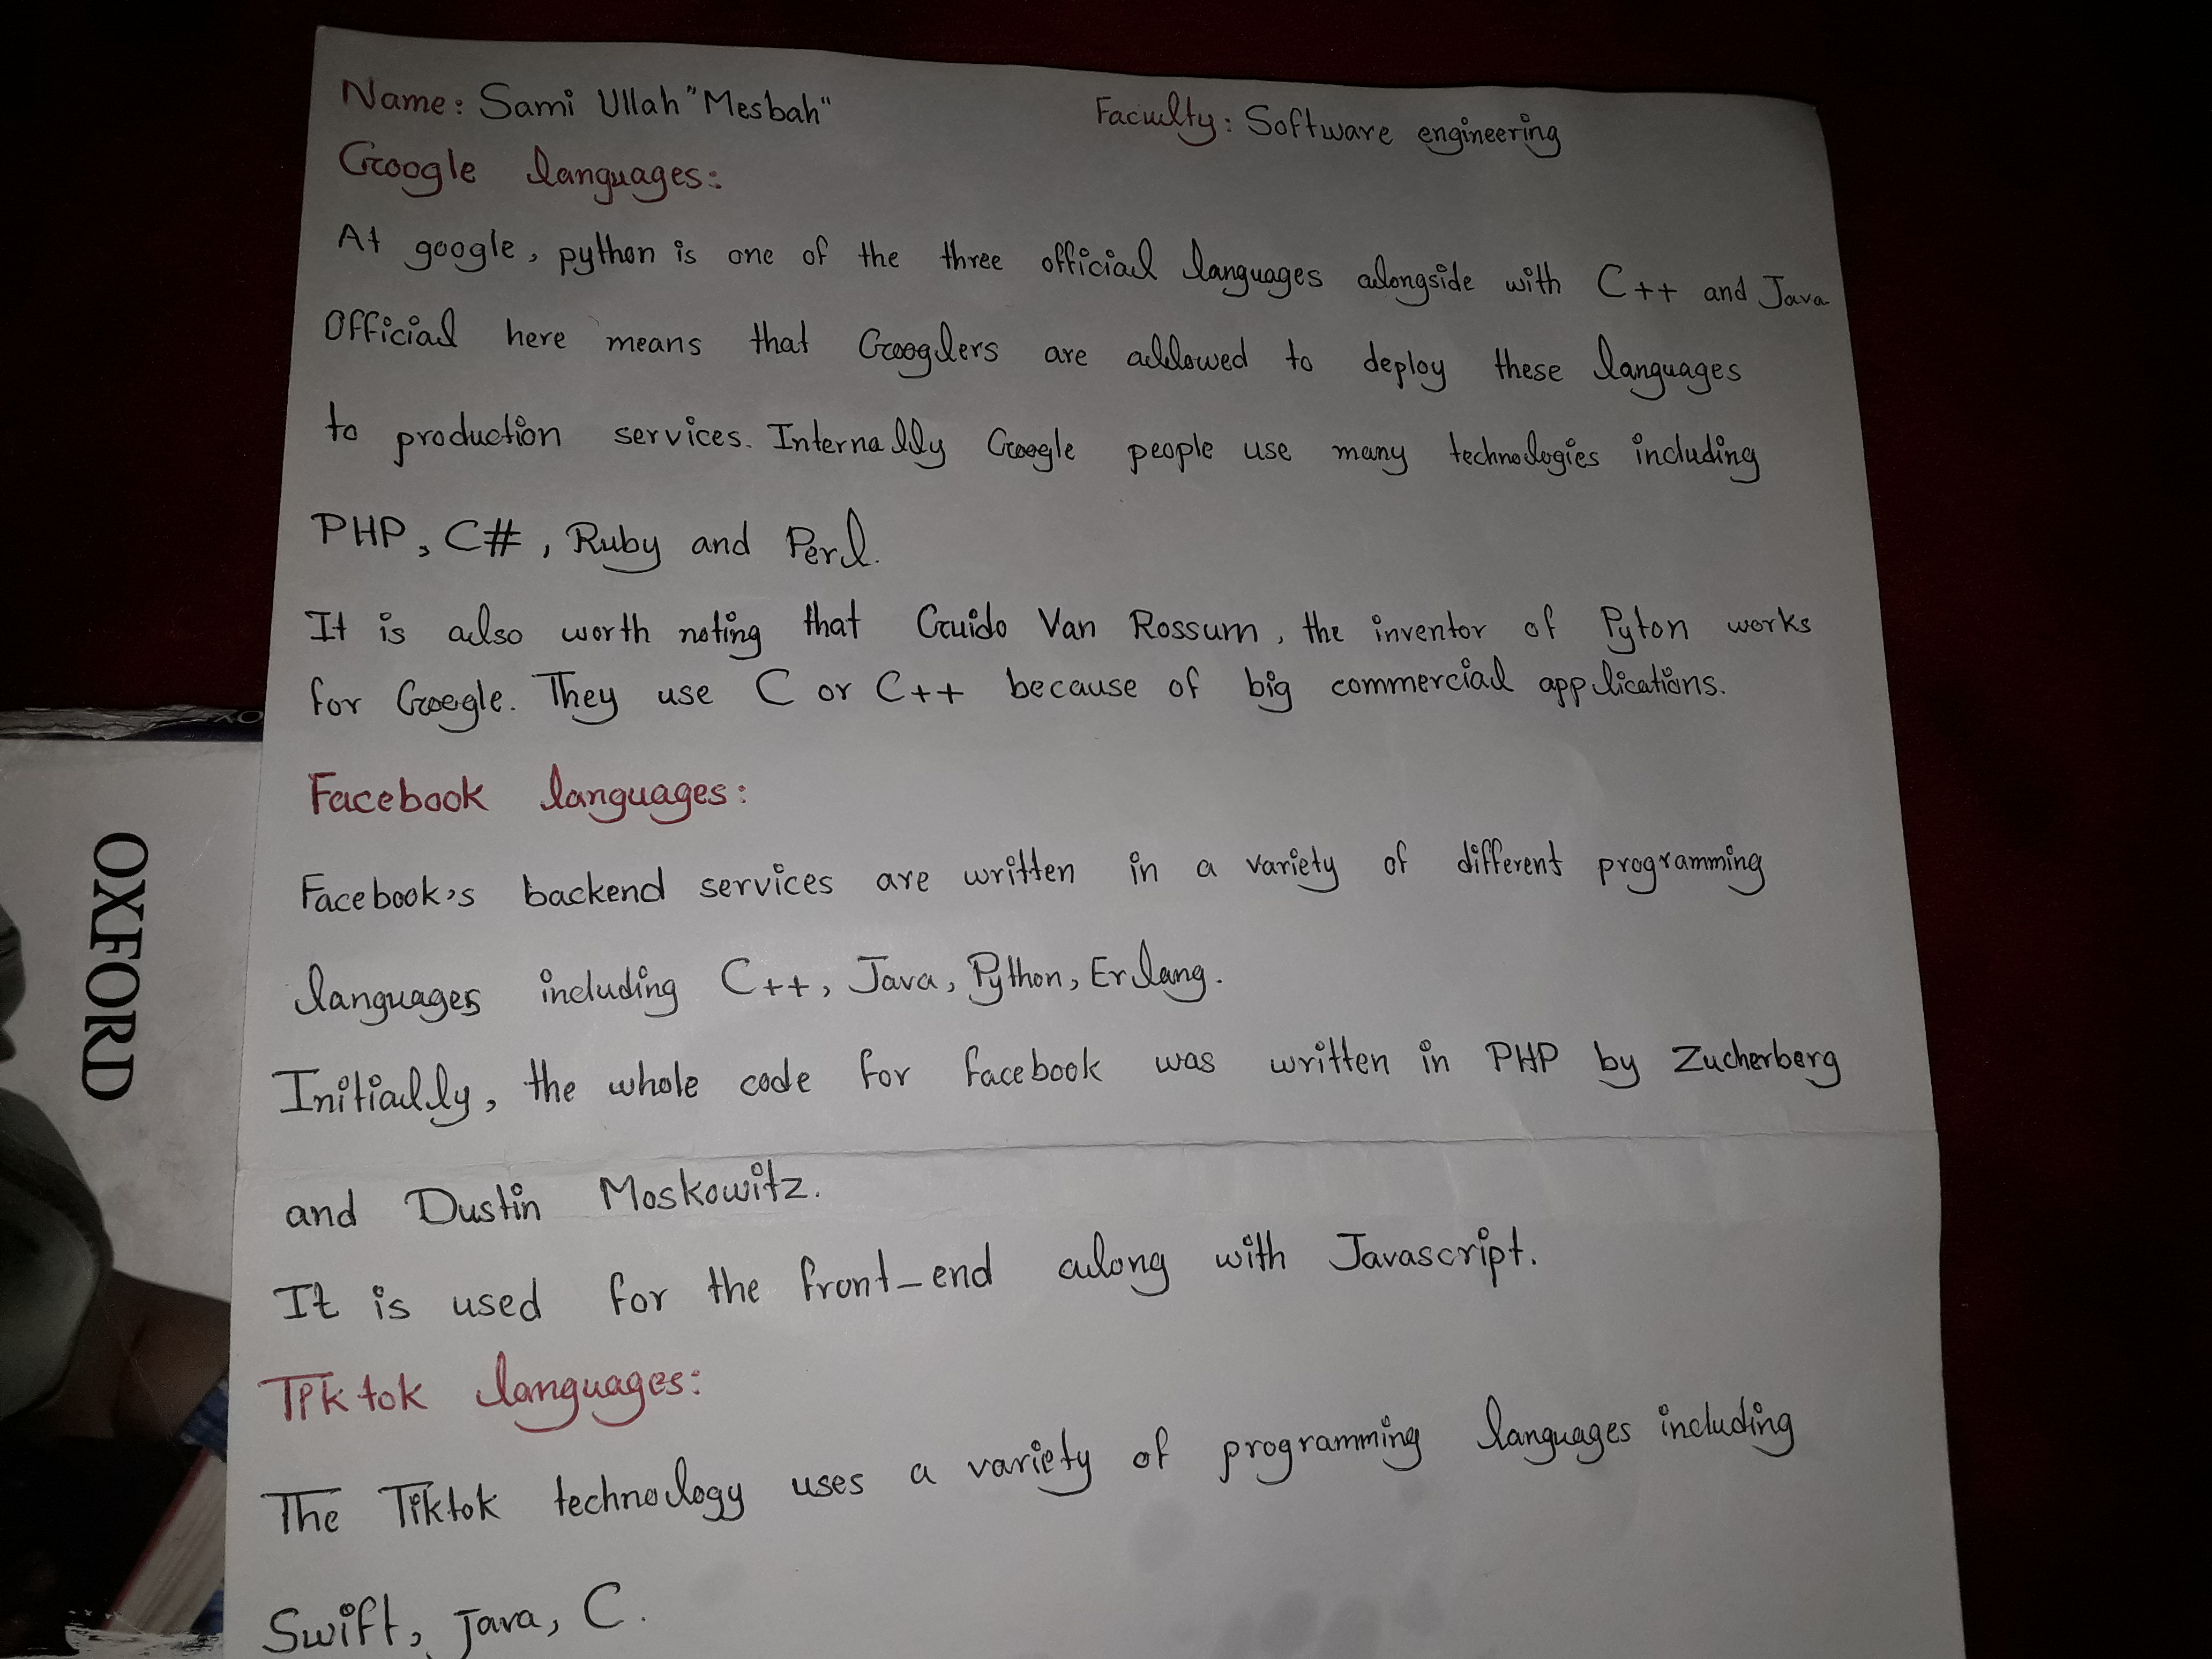 Name: Sami Ullah "Mesbah" Faculty: Software engineering
Google languages:
At google, python is one of the three official languages alongside with C++ and Java
Official here means that Googlers are allowed to deploy these languages
to production services. Internally Google people use many technologies including
PHP, C#, Ruby and Perl.
It is also worth noting that Guido Van Rossum, the inventor of Pyton works
for Google. They use C or C++ because of big commercial applications.
Facebook languages:
Facebook's backend services are written in a variety of different programming
languages including C++, Java, Python, Erlang.
Initially, the whole code for facebook was written in PHP by Zucherberg
and Dustin Moskowitz.
It is used for the front_end along with Javascript.
Tiktok languages:
The Tiktok technology uses a variety of programming languages including
Swift, Java, C.
OXFORD
OX